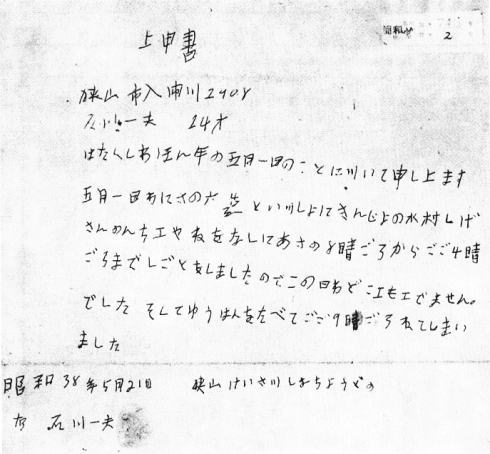 2
上申書
狭山市入市川2908
石川一夫 24才
はたくしわほん年の五月一日のことに川いて申し上ます
五月一日わにさの六造といツしよにきんじよの水村しげ
さんのんち工やねをなしてあさの8時ごろからごご4時
ごろまでしごとをしましたのでこの日わどこエもエでません。
でした そしてゆうはんをたべてごご9時ごろねてしまい
ました
昭和38年5月21日 狭山けいさツしよちようどの
右 石川一夫